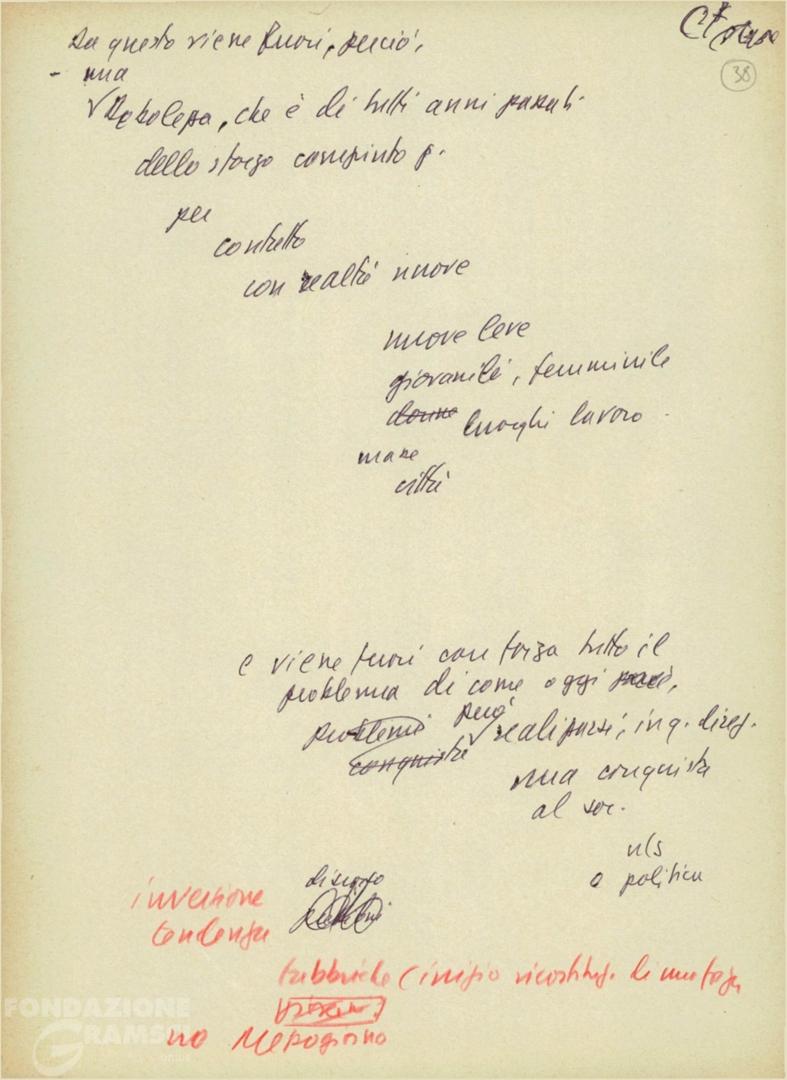 38
Da questo viene fuori, perciò,
- una
debolezza, che è di tutti anni passati
dello sforzo compiuto p.
per
contatto
con realtà nuove
nuove leve
giovanili, femminile
donne luoghi lavoro
mare
città
e viene fuori con forza tutto il
problema di come oggi può,
problemi però
conquista realizzarsi, in q. direz.
una conquista
al soc.
e politica
disegno
inversione
tendenza
fabbriche (inizio ricostituz. di una forza
no Mezzogiorno
FONDAZIONE
GRAMSCI
onlus